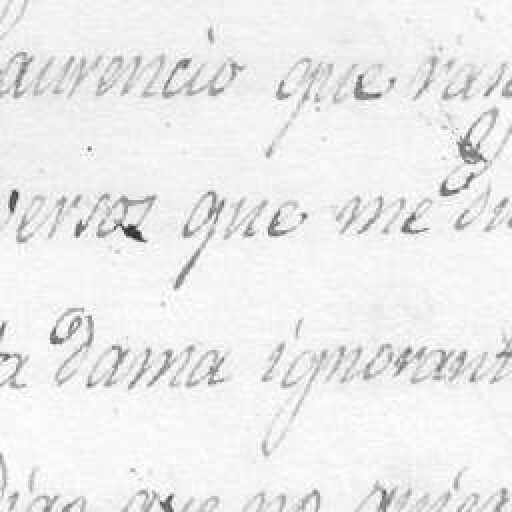 aurencio que ran
versos que me di
ta dama ignorant
digo que no quier